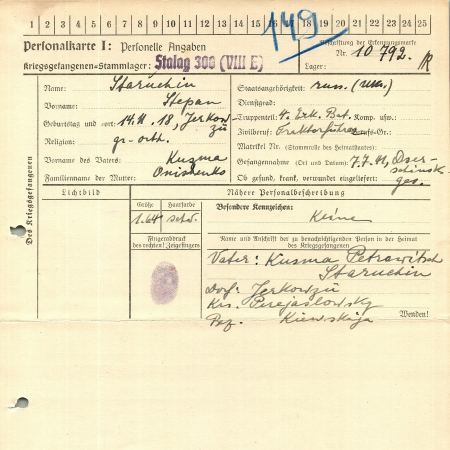 1 2 3 4 5 6 7 8 9 10 11 12 13 14 15 16 17 18 19 20 21 22 23 24 25
149
Personalkarte I: Personelle Angaben
Beschriftung der Erkennungsmarke
Kriegsgefangenen-Stammlager: Stalag 308 (VIII E)
Nr. 10792
Lager:
Des Kriegsgefangenen
Name: Staruchin
Vorname: Stepan
Geburtstag und -ort: 14.11.18, Jerkow-
zü
Religion: gr-orth.
Vorname des Vaters: Kusma
Familienname der Mutter: Onishenko
Staatsangehörigkeit: russ. (ukr.)
Dienstgrad:
Truppenteil: 4. Erk. Bat. Komp. usw.:
Zivilberuf: Traktorführer Berufs-Gr.:
Matrikel Nr. (Stammrolle des Heimatstaates):
Gefangennahme (Ort und Datum): 7.7.41, Dser-
schinsk-
Ob gesund, krank, verwundet eingeliefert: ges.
Lichtbild
Nähere Personalbeschreibung
Größe
1.64
Haarfarbe
schw.
Besondere Kennzeichen:
Keine
Fingerabdruck
des rechten! Zeigefingers
Name und Anschrift der zu benachrichtigenden Person in der Heimat
des Kriegsgefangenen
Vater: Kusma Petrowitsch
Staruchin
Dorf: Jerkowzü
Krs. Perejaslowsky
Kiewskaja
Wenden!